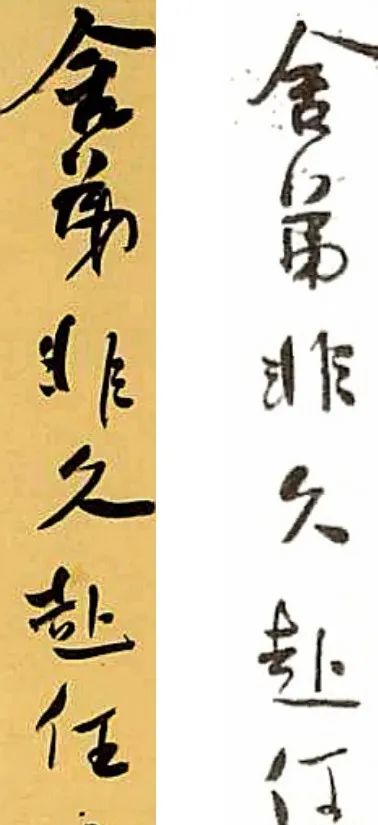 舍弟非久赴任
舍弟非久赴任